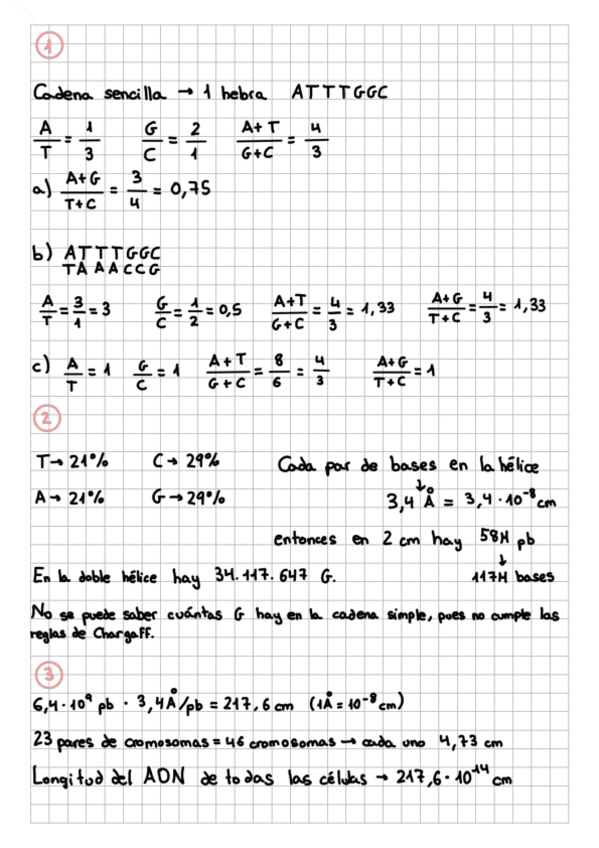 1
Cadena sencilla → 1 hebra ATTTGGC
A/T = 1/3 G/C = 2/1 A+T/G+C = 4/3
a) A+G/T+C = 3/4 = 0,75
b) ATTTGGC
TAAACCG
A/T = 3/1 = 3 G/C = 1/2 = 0,5 A+T/G+C = 4/3 = 1,33 A+G/T+C = 4/3 = 1,33
c) A/T = 1 G/C = 1 A+T/G+C = 8/6 = 4/3 A+G/T+C = 1
2
T→ 21% C→ 29% Cada par de bases en la hélice
↓
A→ 21% G→ 29% 3,4 Å = 3,4·10⁻⁸ cm
entonces en 2 cm hay 58M pb
↓
En la doble hélice hay 34.117.647 G. 117M bases
No se puede saber cuántas G hay en la cadena simple, pues no cumple las
reglas de Chargaff.
3
6,4·10⁹ pb · 3,4Å/pb = 217,6 cm (1Å = 10⁻⁸ cm)
23 pares de cromosomas = 46 cromosomas → cada uno 4,73 cm
Longitud del ADN de todas las células → 217,6·10⁻¹⁴ cm